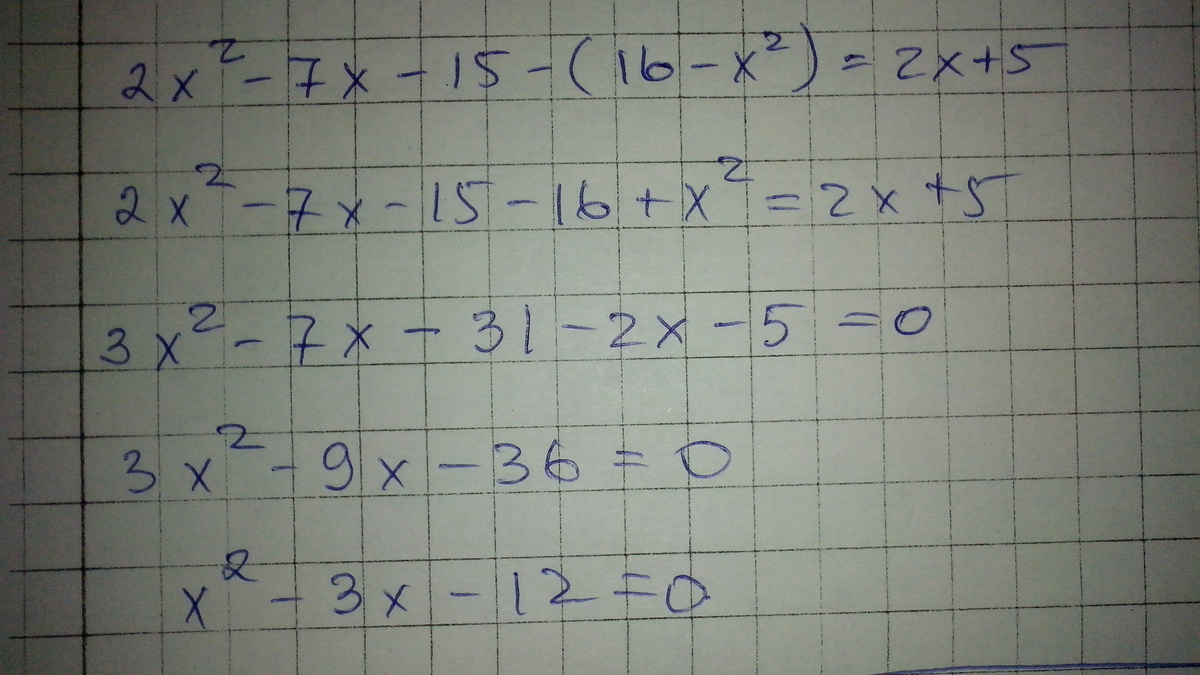 2x² - 7x - 15 - (16 - x²) = 2x + 5
2x² - 7x - 15 - 16 + x² = 2x + 5
3x² - 7x - 31 - 2x - 5 = 0
3x² - 9x - 36 = 0
x² - 3x - 12 = 0